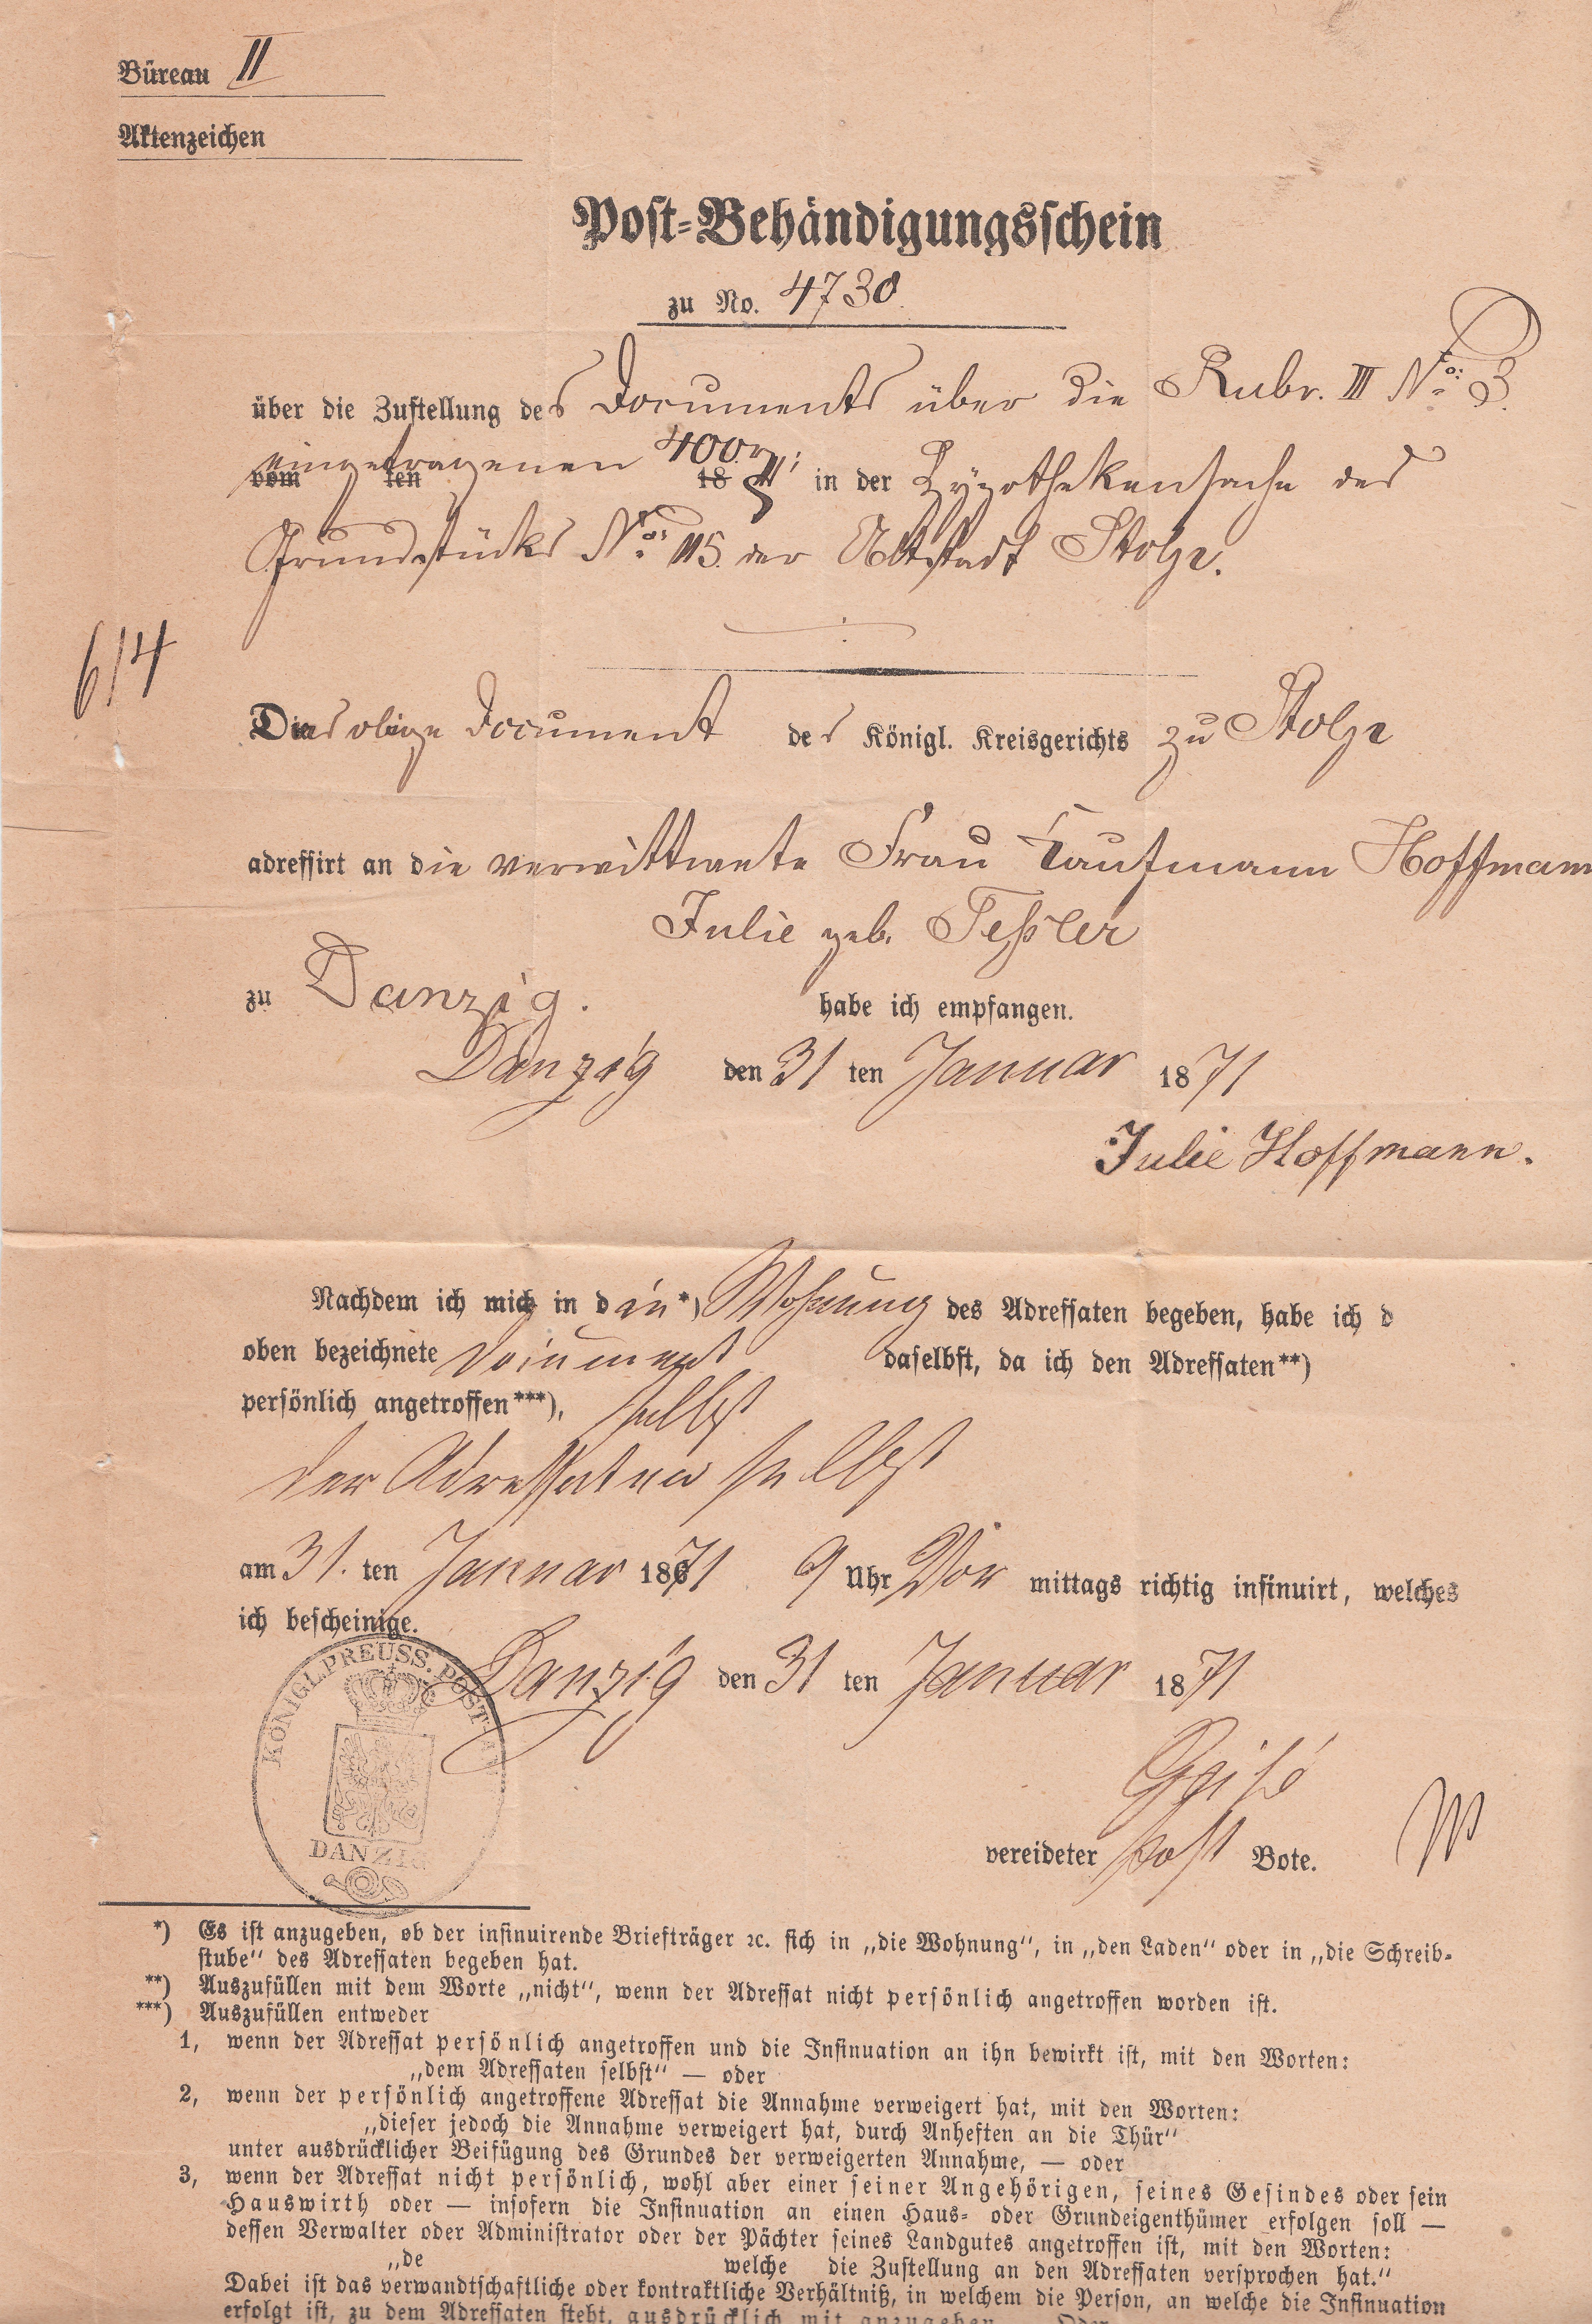 Büreau II
Aktenzeichen
Post-Behändigungsschein
zu No. 4730
über die Zustellung des Documents über die Rubr. III No: 3.
eingetragenen 400 rℓ;
vom ten 18 in der Hypothekensache des
Grundstücks No: 115. der Altstadt Stolp.
6/4
Das obige Document des Königl. Kreisgerichts zu Stolp
adressirt an die verwittwete Frau Kaufmann Hoffmann
Julie geb. Teßler
zu Danzig. habe ich empfangen.
Danzig den 31 ten Januar 1871
Julie Hoffmann.
Nachdem ich mich in die*) Wohnung des Adressaten begeben, habe ich d
oben bezeichnete Document daselbst, da ich den Adressaten**)
persönlich angetroffen***), selbst
der Adressatin selbst
am 31. ten Januar 1871 9 Uhr Vor mittags richtig insinuirt, welches
ich bescheinige.
Danzig den 31 ten Januar 1871
KÖNIGL. PREUSS. POST-
DANZIG
vereideter Post Bote.
*) Es ist anzugeben, ob der insinuirende Briefträger ꝛc. sich in „die Wohnung“, in „den Laden“ oder in „die Schreib-
stube“ des Adressaten begeben hat.
**) Auszufüllen mit dem Worte „nicht“, wenn der Adressat nicht persönlich angetroffen worden ist.
***) Auszufüllen entweder
1, wenn der Adressat persönlich angetroffen und die Insinuation an ihn bewirkt ist, mit den Worten:
„dem Adressaten selbst“ — oder
2, wenn der persönlich angetroffene Adressat die Annahme verweigert hat, mit den Worten:
„dieser jedoch die Annahme verweigert hat, durch Anheften an die Thür“
unter ausdrücklicher Beifügung des Grundes der verweigerten Annahme, — oder
3, wenn der Adressat nicht persönlich, wohl aber einer seiner Angehörigen, seines Gesindes oder sein
Hauswirth oder — insofern die Insinuation an einen Haus- oder Grundeigenthümer erfolgen soll —
dessen Verwalter oder Administrator oder der Pächter seines Landgutes angetroffen ist, mit den Worten:
„de welche die Zustellung an den Adressaten versprochen hat.“
Dabei ist das verwandtschaftliche oder kontraktliche Verhältniß, in welchem die Person, an welche die Insinuation
erfolgt ist, zu dem Adressaten steht, ausdrücklich mit anzugeben. Oder